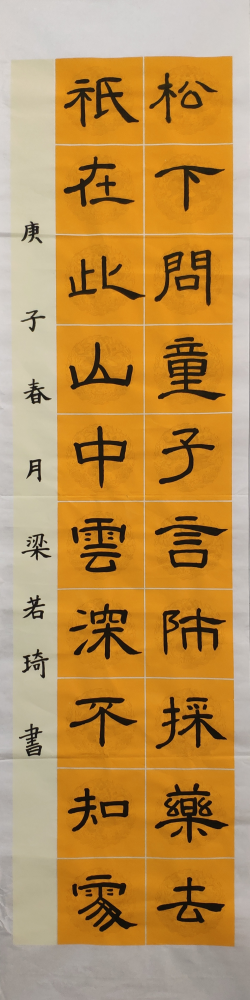 松下問童子言師採藥去
祇在此山中雲深不知處
庚子春月梁若琦書